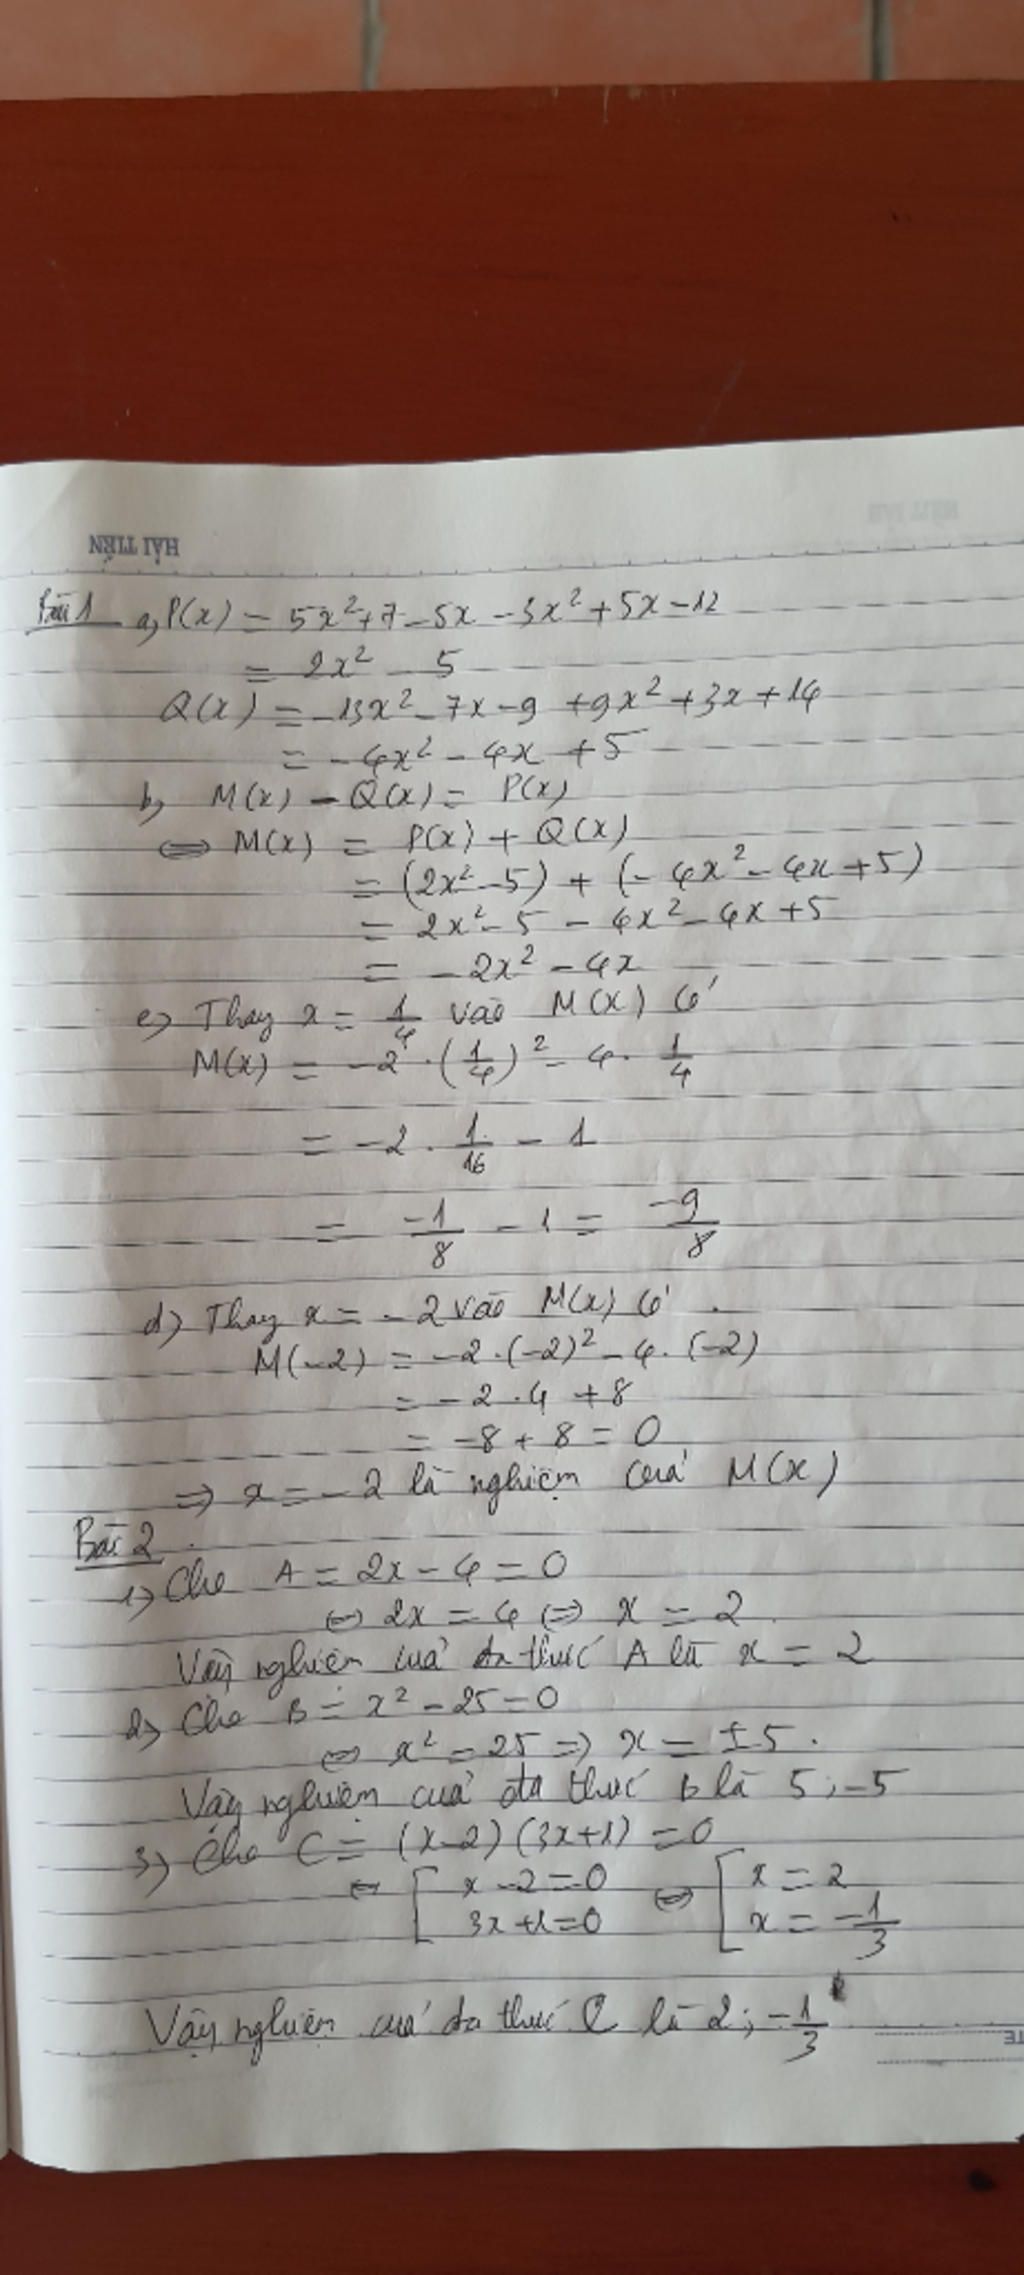 HẢI TIẾN
Bài 1 a, P(x) = 5x² + 7 - 5x - 3x² + 5x - 12
= 2x² - 5
Q(x) = -13x² - 7x - 9 + 9x² + 3x + 14
= -4x² - 4x + 5
b, M(x) - Q(x) = P(x)
⇔ M(x) = P(x) + Q(x)
= (2x² - 5) + (-4x² - 4x + 5)
= 2x² - 5 - 4x² - 4x + 5
= -2x² - 4x
c) Thay x = 1/4 vào M(x) có
M(x) = -2 · (1/4)² - 4 · 1/4
= -2 · 1/16 - 1
= -1/8 - 1 = -9/8
d) Thay x = -2 vào M(x) có
M(-2) = -2 · (-2)² - 4 · (-2)
= -2 · 4 + 8
= -8 + 8 = 0
=> x = -2 là nghiệm của M(x)
Bài 2
1) Cho A = 2x - 4 = 0
⇔ 2x = 4 ⇔ x = 2
Vậy nghiệm của đa thức A là x = 2
2) Cho B = x² - 25 = 0
⇔ x² = 25 => x = ±5.
Vậy nghiệm của đa thức B là 5; -5
3) Cho C = (x-2)(3x+1) = 0
⇔ [ x - 2 = 0 ⇔ [ x = 2
3x + 1 = 0 x = -1/3
Vậy nghiệm của đa thức C là 2; -1/3